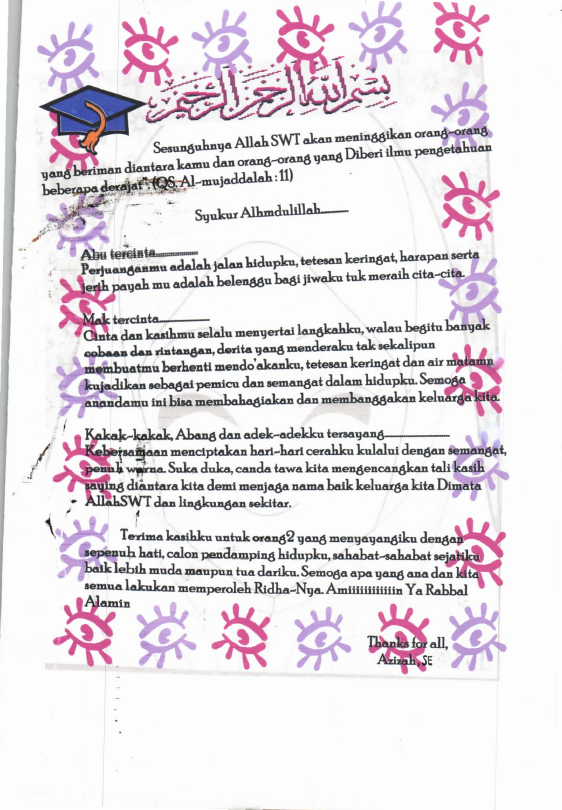 بسم الله الرحمن الرحيم
Sesunguhnya Allah SWT akan meninggikan orang-orang
yang beriman diantara kamu dan orang-orang yang Diberi ilmu pengetahuan
beberapa derajat". (QS. Al-mujaddalah : 11)
Syukur Alhmdulillah............
Abu tercinta..................
Perjuanganmu adalah jalan hidupku, tetesan keringat, harapan serta
jerih payah mu adalah belenggu bagi jiwaku tuk meraih cita-cita.
Mak tercinta.....................
Cinta dan kasihmu selalu menyertai langkahku, walau begitu banyak
cobaan dan rintangan, derita yang menderaku tak sekalipun
membuatmu berhenti mendo'akanku, tetesan keringat dan air matamn
kujadikan sebagai pemicu dan semangat dalam hidupku. Semoga
anandamu ini bisa membahagiakan dan membanggakan keluarga kita.
Kakak-kakak, Abang dan adek-adekku tersayang...........................
Kebersamaan menciptakan hari-hari cerahku kulalui dengan semangat,
penuh warna. Suka duka, canda tawa kita mengencangkan tali kasih
saying diantara kita demi menjaga nama baik keluarga kita Dimata
AllahSWT dan lingkungan sekitar.
Terima kasihku untuk orang2 yang menyayangiku dengan
sepenuh hati, calon pendamping hidupku, sahabat-sahabat sejatiku
baik lebih muda maupun tua dariku. Semoga apa yang ana dan kita
semua lakukan memperoleh Ridha-Nya. Amiiiiiiiiiiiiin Ya Rabbal
Alamin
Thanks for all,
Azizah, SE